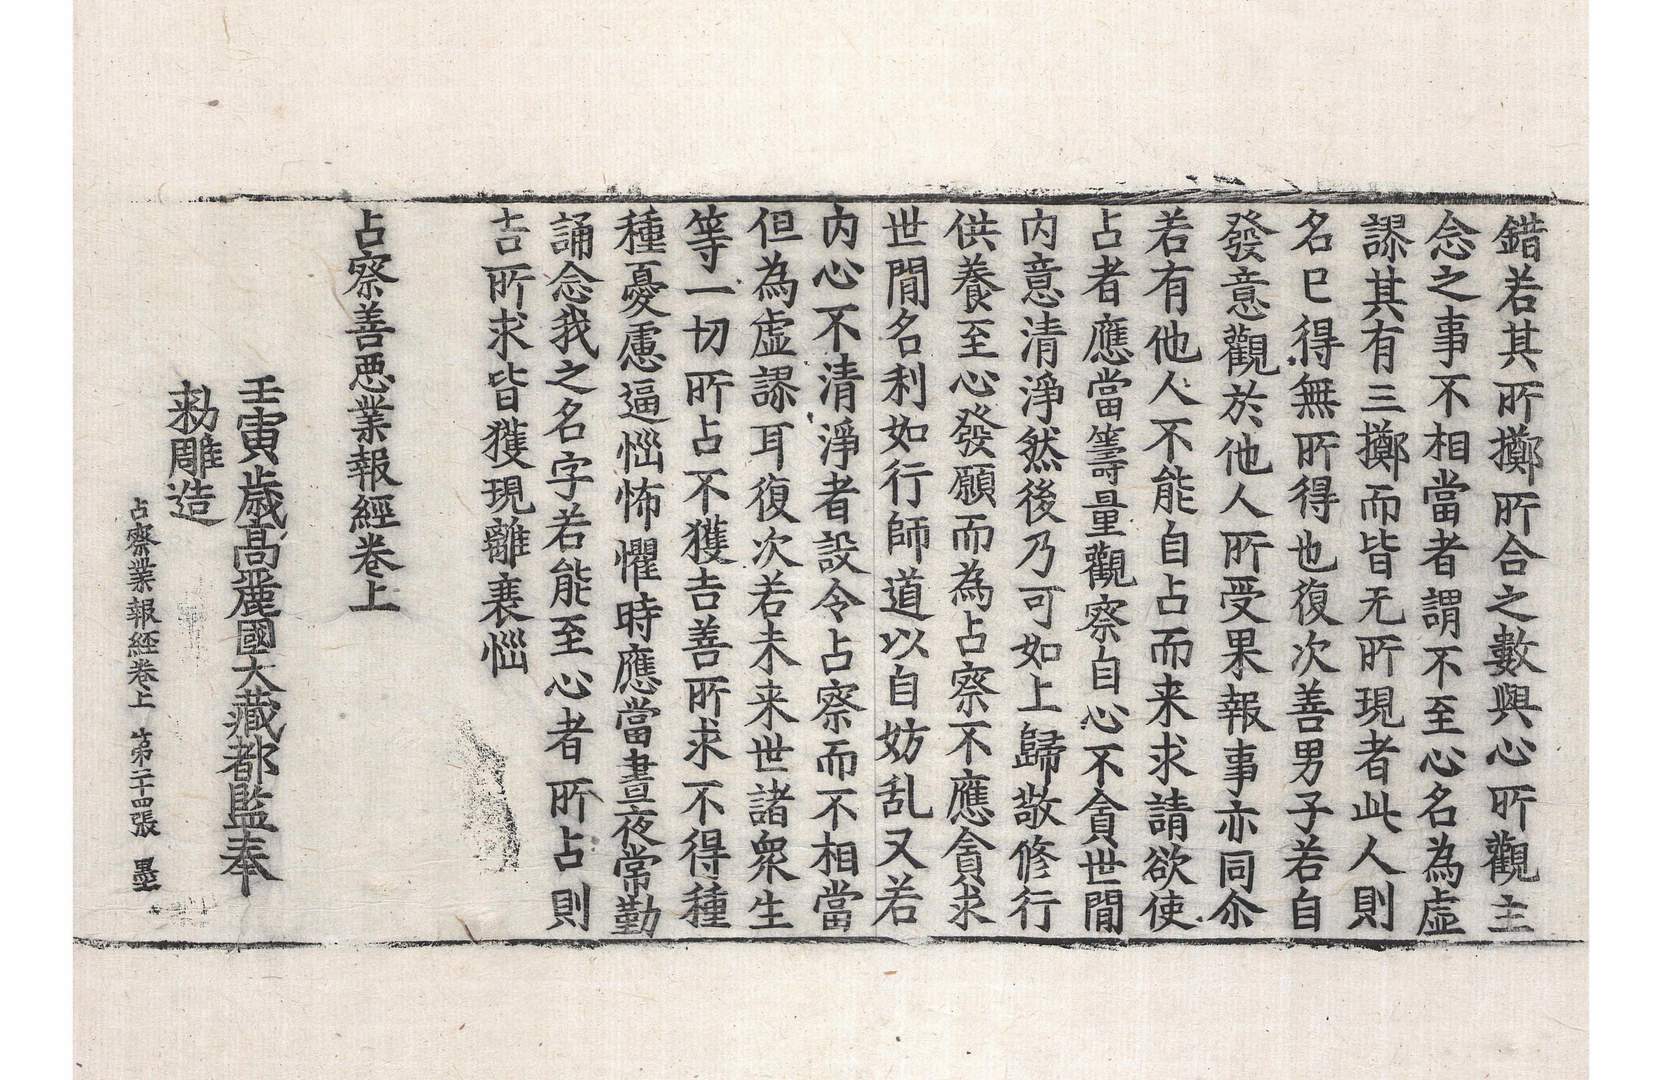 錯若其所擲所合之數與心所觀主
念之事不相當者謂不至心名為虛
謬其有三擲而皆无所現者此人則
名已得無所得也復次善男子若自
發意觀於他人所受果報事亦同尒
若有他人不能自占而来求請欲使
占者應當籌量觀察自心不貪世閒
内意清淨然後乃可如上歸敬修行
供養至心發願而為占察不應貪求
世閒名利如行師道以自妨乱又若
内心不清淨者設令占察而不相當
但為虛謬耳復次若未来世諸衆生
等一切所占不獲吉善所求不得種
種憂慮逼惱怖懼時應當晝夜常勤
誦念我之名字若能至心者所占則
吉所求皆獲現離衰惱
占察善惡業報經卷上
壬寅歲高麗國大藏都監奉
勑雕造
占察業報経卷上 第二十四張 墨